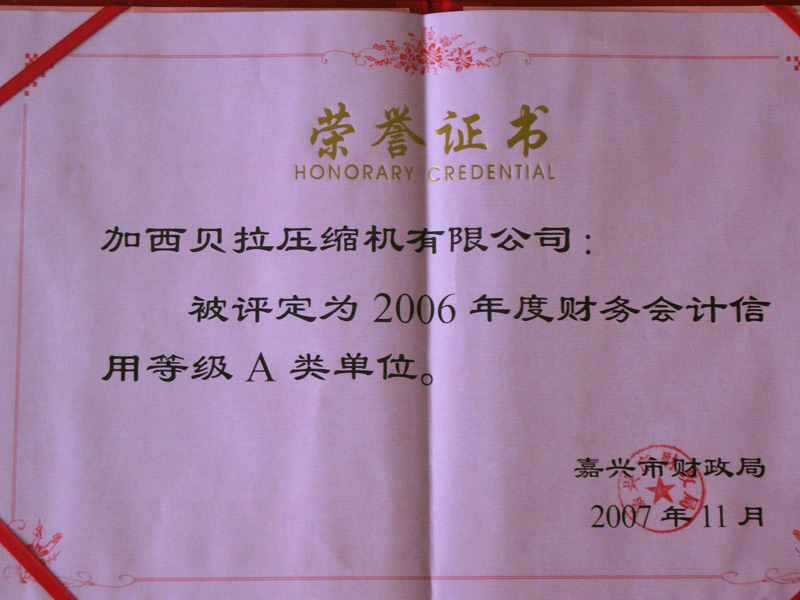 荣誉证书
HONORARY CREDENTIAL
加西贝拉压缩机有限公司：
被评定为 2006 年度财务会计信
用等级 A 类单位。
嘉兴市财政局
2007 年 11 月